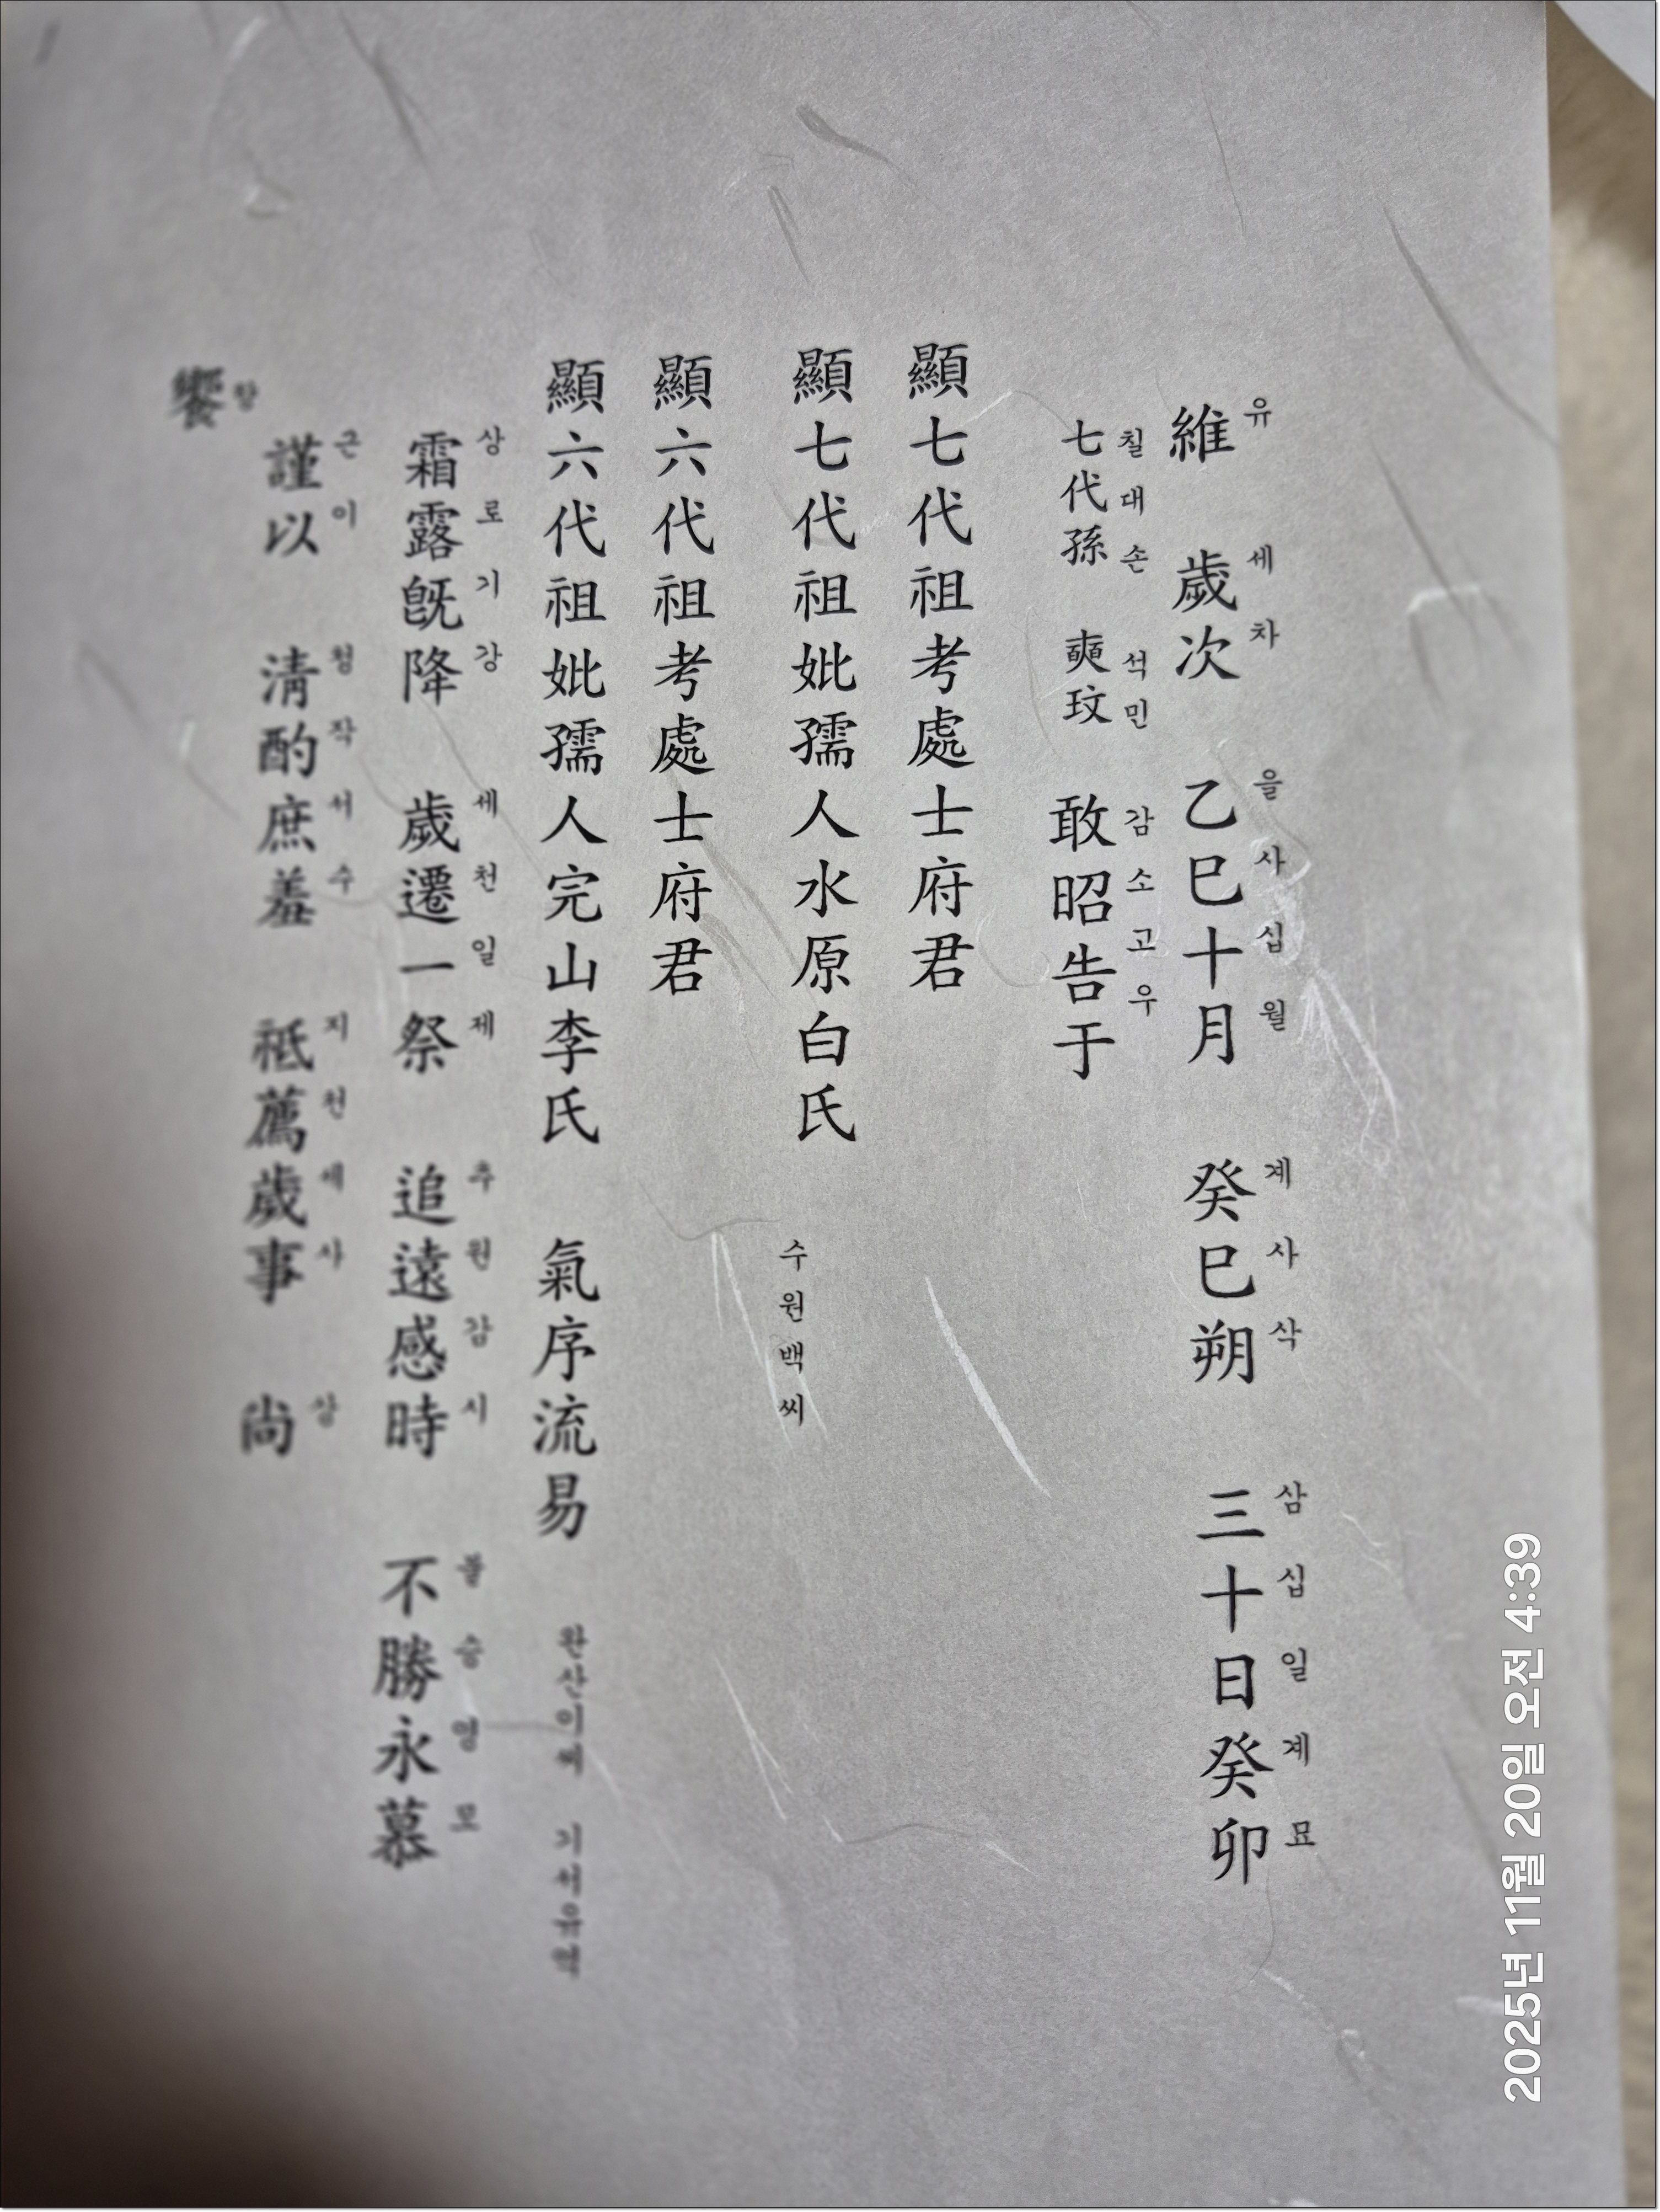 維 歲次 乙巳十月 癸巳朔 三十日癸卯
유 세차 을사십월 계사삭 삼십일계묘
七代孫 奭玟 敢昭告于
칠대손 석민 감소고우
顯七代祖考處士府君
顯七代祖妣孺人水原白氏 수원백씨
顯六代祖考處士府君
顯六代祖妣孺人完山李氏 氣序流易 완산이씨 기서유역
霜露旣降 歲遷一祭 追遠感時 不勝永慕
상로기강 세천일제 추원감시 불승영모
謹以 淸酌庶羞 祗薦歲事 尙
근이 청작서수 지천세사 상
饗
향
2025년 11월 20일 오전 4:39